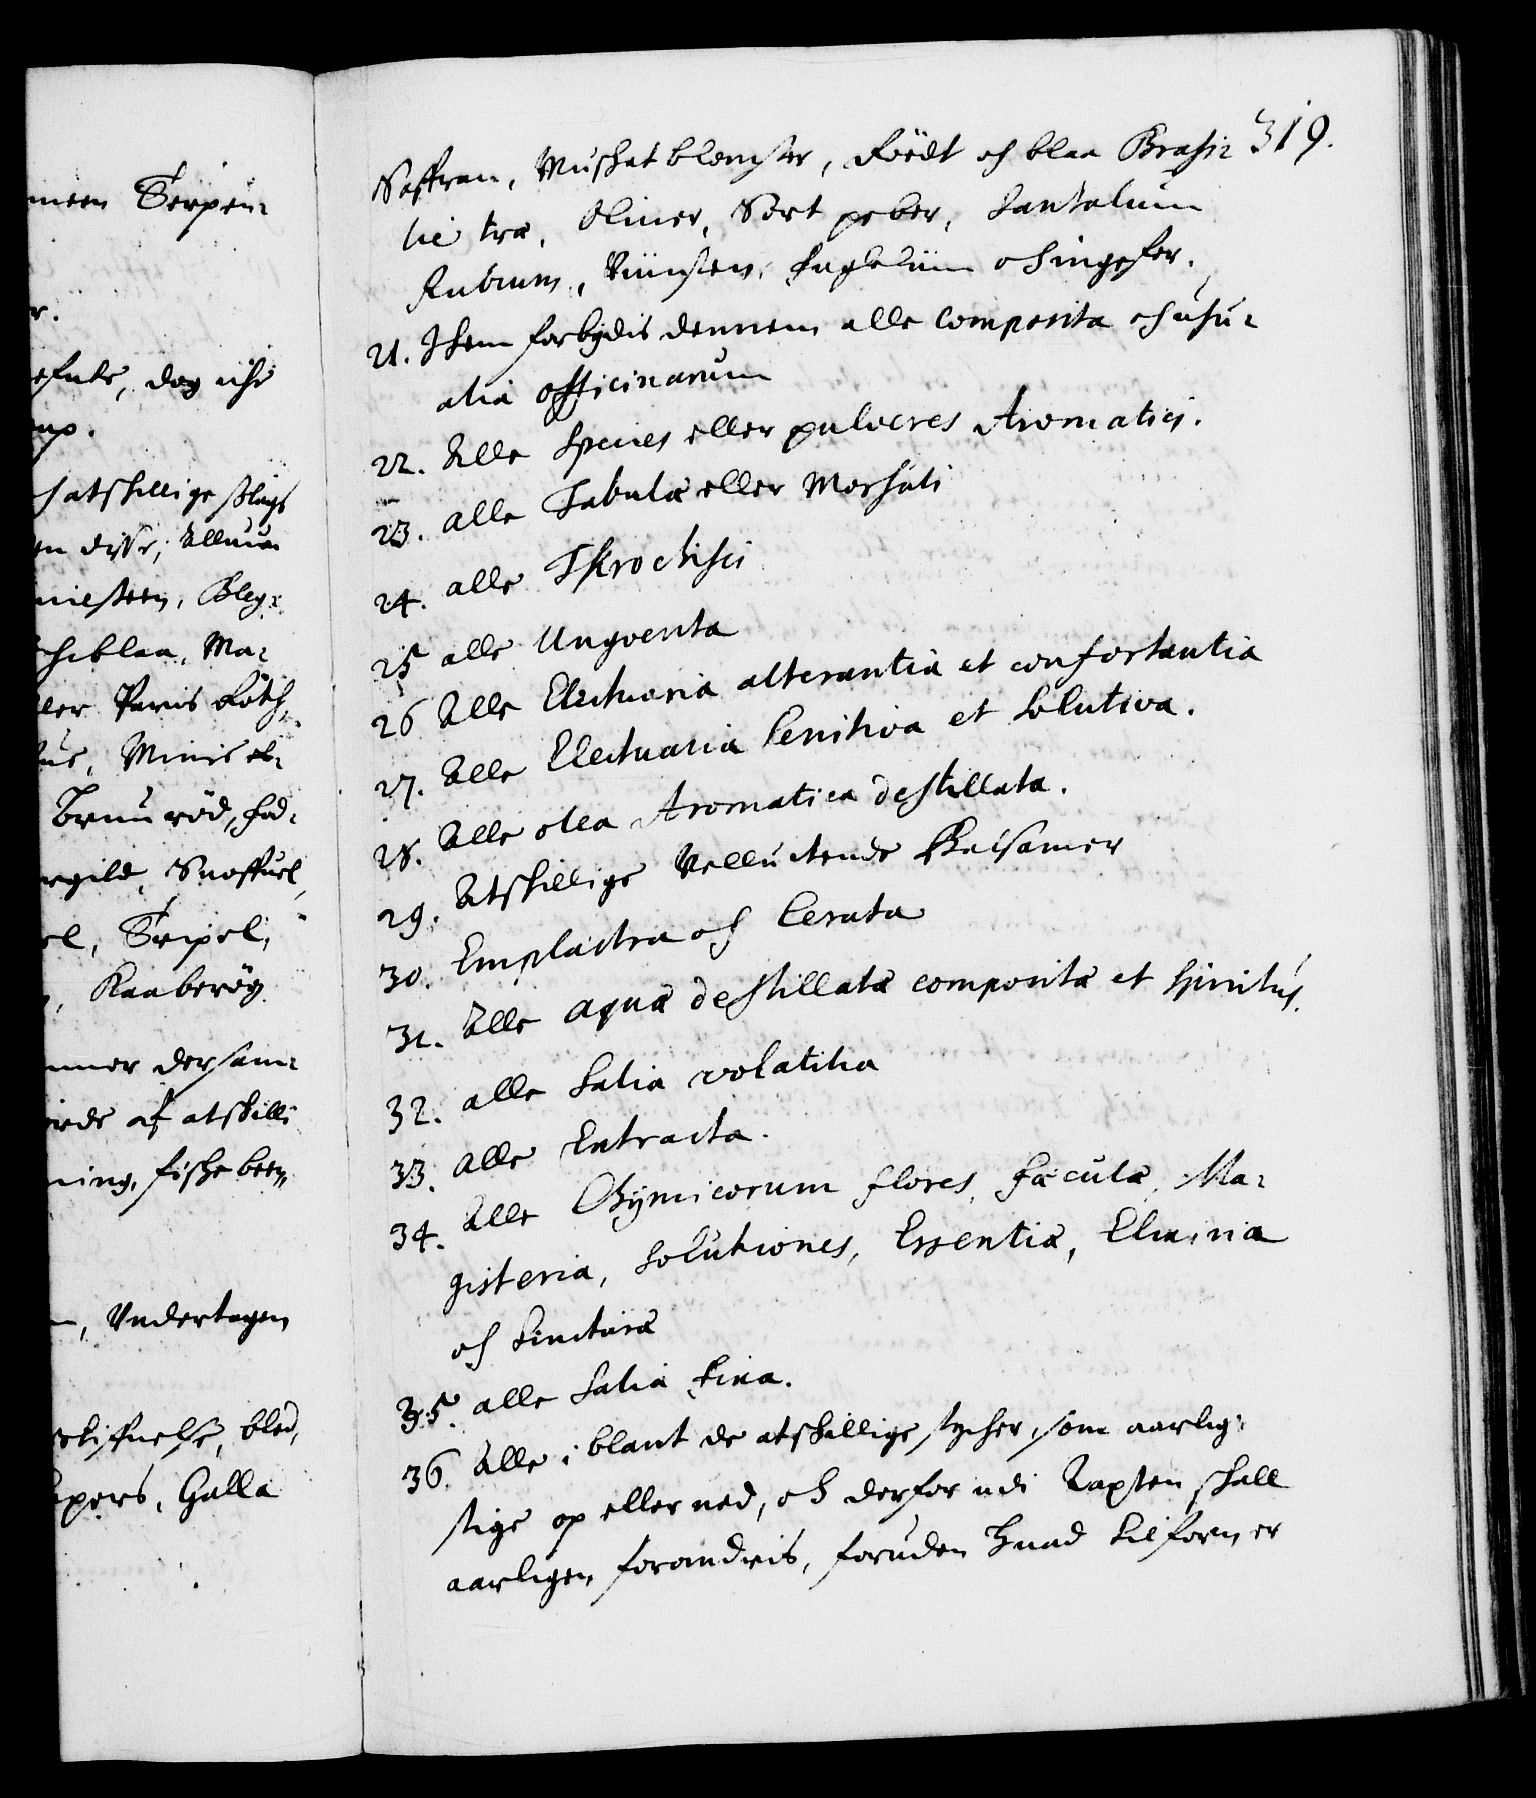 meen Terpen-
r.
efnte, dog icke
up.
h atskillige slags
en disse, Alluun
niesteen, Bleg-
hiblaa, Ma-
ler Paris Röth,
us, Minie el-
Bruun röd, fad-
rgild, Snoffuel
el, Tripel,
, Kaaberög
mmer dersam-
irde af atskilli
ning, fiskebeen
, Undertagen
ktifuelse, bled,
pers, Galla
319.
Saffran, Muskatblomster, Röedt och blaa Brasi-
lie træ, Oliuer, Sort peber, Santalum
Rubrum, Viinsteen, fuglelim och ingefer.
21. Item forbydis dennem alle Composita och usu-
alia officinarum
22. Alle Species eller pulveres Aromatici.
23. alle Tabulæ eller Morsuli
24. alle Throchisci
25 alle Ungventa
26 Alle Electuaria alterantia et confortantia
27. Alle Electuaria lenitiva et solutiva.
28. Alle olea Aromatica destillata.
29. Atskillige Velluctende Balsamer
30. Emplastra och Cerata
31. Alle aquæ destillatæ compositæ et spiritus.
32. alle Salia volatilia
33. alle Extracta.
34. Alle Chymicorum flores, fæculæ, Ma-
gisteria, Solutiones, Essentiæ, Elixiria
och tincturæ
35. alle Salia fixa.
36. Alle i blant de atskillige stycker, som aarlig
stige op eller ned, och derfor udi Taxten skall
aarligen forandris, foruden huad tilforn er